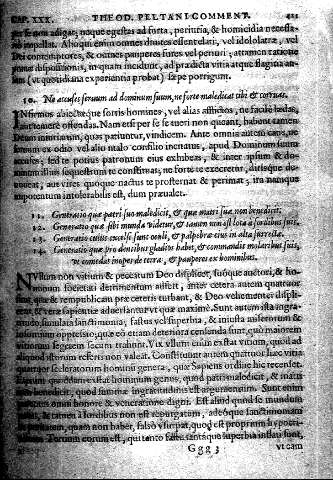 CAP. XXX. THEOD. PELTANI COMMENT. 421
per se non adigat; neque egestas ad furta, periuria, & homicidia necessa-
riò impellat. Alioqui enim omnes diuites essent elati, vel idololatræ, vel
Dei contemptores, & omnes pauperes fures vel periuri; attamen ratione
dispositionis, in quam incidunt, ad prædicta vitia atque flagitia
(vt quotidiana experientia probat) sæpe porrigunt.
10. Ne accuses seruum ad dominum suum, ne forte maledicat tibi & corruas.
INfirmos abiectæque sortis homines, vel alias afflictos, ne facilè lædas,
aut temerè offendas. Nam etsi per se se tueri non queant, habent tamen
iniuriarum, quas patiuntur, vindicem. Ante omnia autem caue, ne
seruum ex odio vel alio malo consilio incitatus, apud Dominum suum
accuses; sed te potius patronum eius exhibeas, & inter ipsum & do-
minum illius sequestrum te constituas, ne forte te execretur, dirisque de-
uoueat, aut vires quoque nactus te prosternat & perimat; ira namque
impotentum intolerabilis est, dum præualet.
11. Generatio quæ patri suo maledicit, & quæ matri suæ non benedicit.
12. Generatio quæ sibi munda videtur, & tamen non est lota à sordibus suis.
13. Generatio cuius excelsi sunt oculi, & palpebræ eius in alta surrectæ.
14. Generatio quæ pro dentibus gladios habet, & commandit molaribus suis,
vt comedat inopes de terra, & pauperes ex hominibus.
NVllum non vitium & peccatum Deo displicet, suoque auctori, & ho-
minum societati detrimentum affert, inter cetera autem quattuor
sunt, quæ & rempublicam præ ceteris turbant, & Deo vehementer displi-
cent, & veræ sapientiæ aduersantur vt quæ maximè. Sunt autem ista ingra-
titudo, simulata sanctimonia, fastus vel superbia, & iniusta afflictorum &
pauperum oppressio; quæ eò etiam deteriora censenda sunt, quò maiorem
vitiorum segetem secum trahunt. Vix vllum enim extat vitium, quod ad
aliquod istorum referri non valeat. Constituunt autem quattuor hæc vitia
quattuor sceleratorum hominum genera, quæ Sapiens ordine hic recenset.
quoddam extat hominum genus, quod patri maledicit, & matri
non benedicit, quod summæ ingratitudinis est argumentum. Sunt enim
omni honore & veneratione digni. Est aliud quod se mundum
& tamen à sordibus non est repurgatum, adeoque sanctimoniam
quam non habet, falsò vsurpat, quod est proprium hypocri-
Tertium eorum est, qui tanto fastu tantáque superbia inflati sunt,
Ggg 3 vt eam